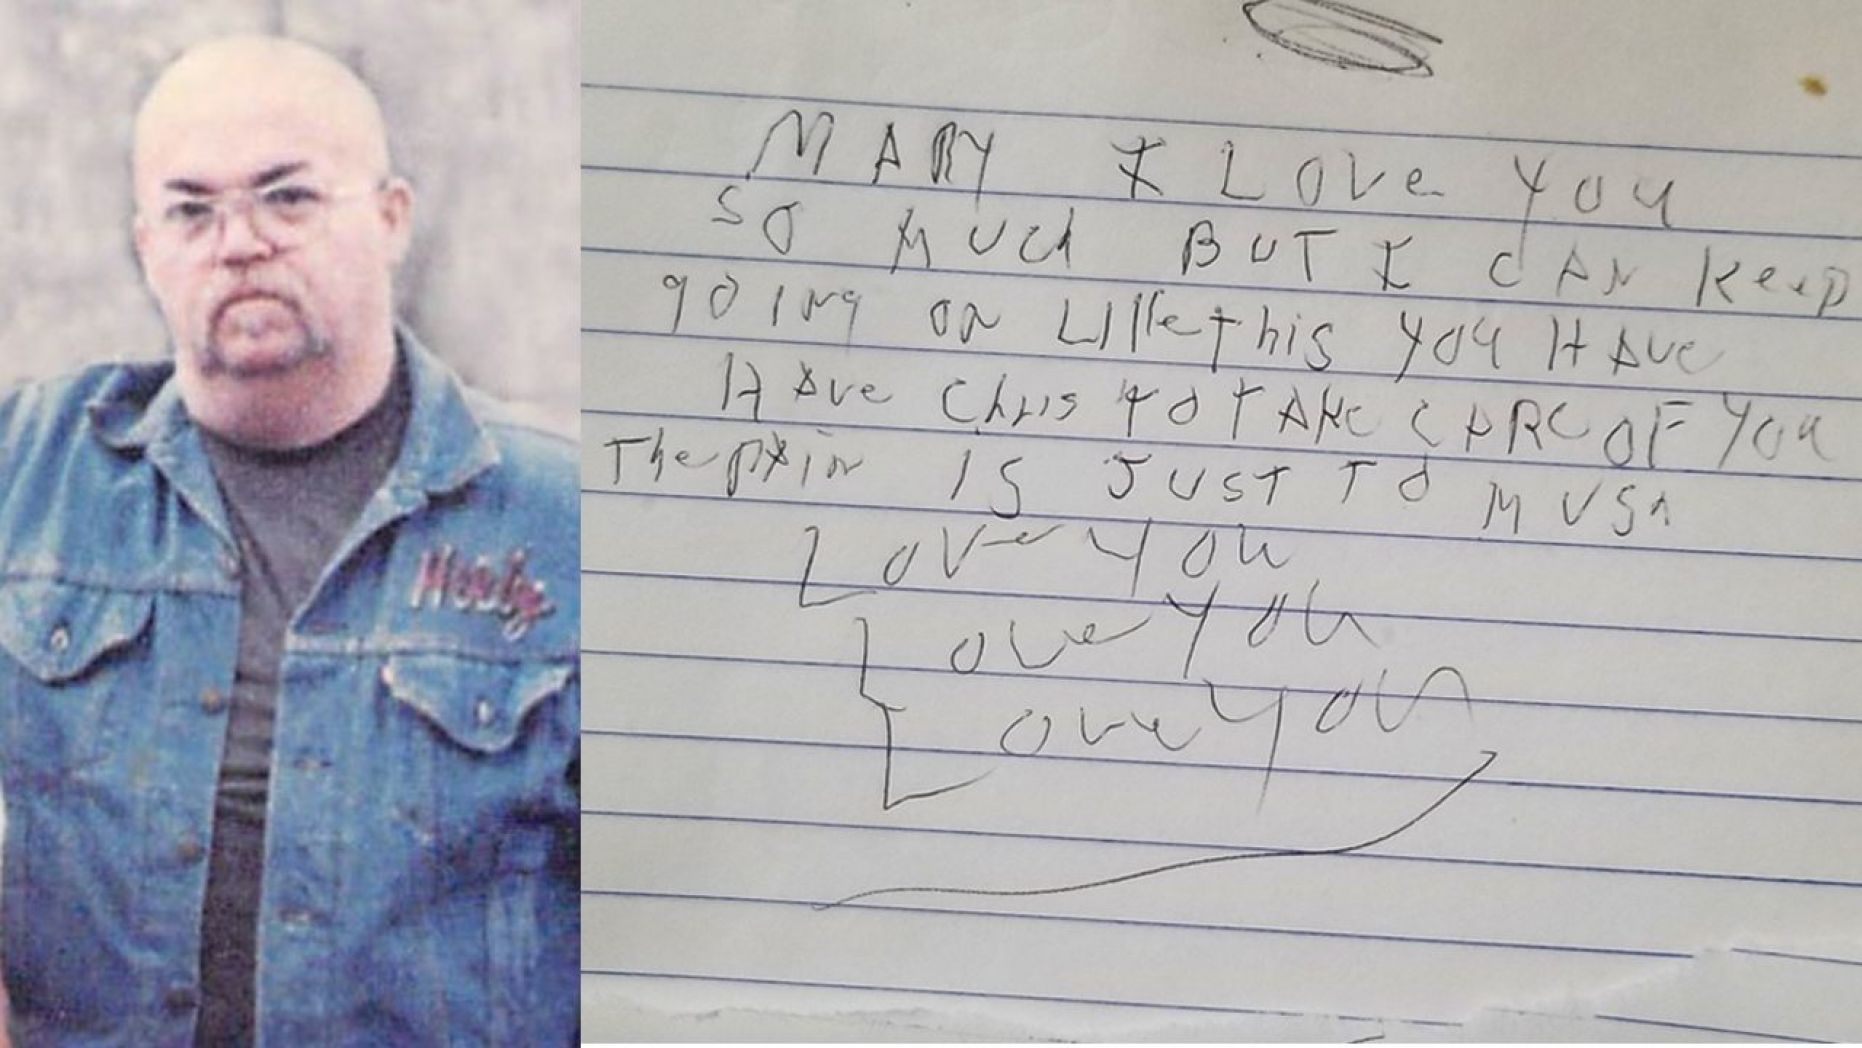 MARY I LOVe YOU
SO MUCH BUT I CAN Keep
going on LIKe this YOU HAVe
HAve Chris TO TAKe CARe OF YOU
The pain IS JUST TO MUSH
Love You
Love You
Love You